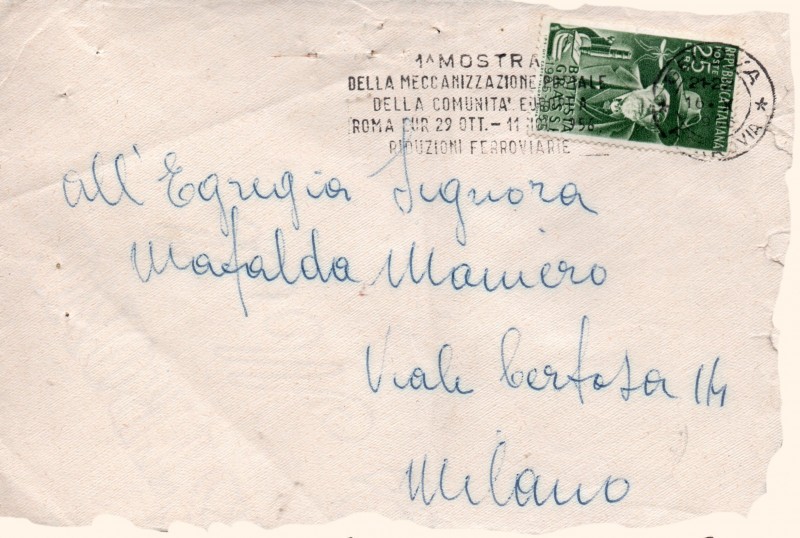 1ª MOSTRA
DELLA MECCANIZZAZIONE
DELLA COMUNITA'
ROMA EUR 29 OTT. - 11
RIDUZIONI FERROVIARIE
REPUBBLICA ITALIANA
POSTE
25
LIRE
BATTISTA
GRASSI
all'Egregia Signora
Mafalda Maniero
Viale Certosa 114
Milano